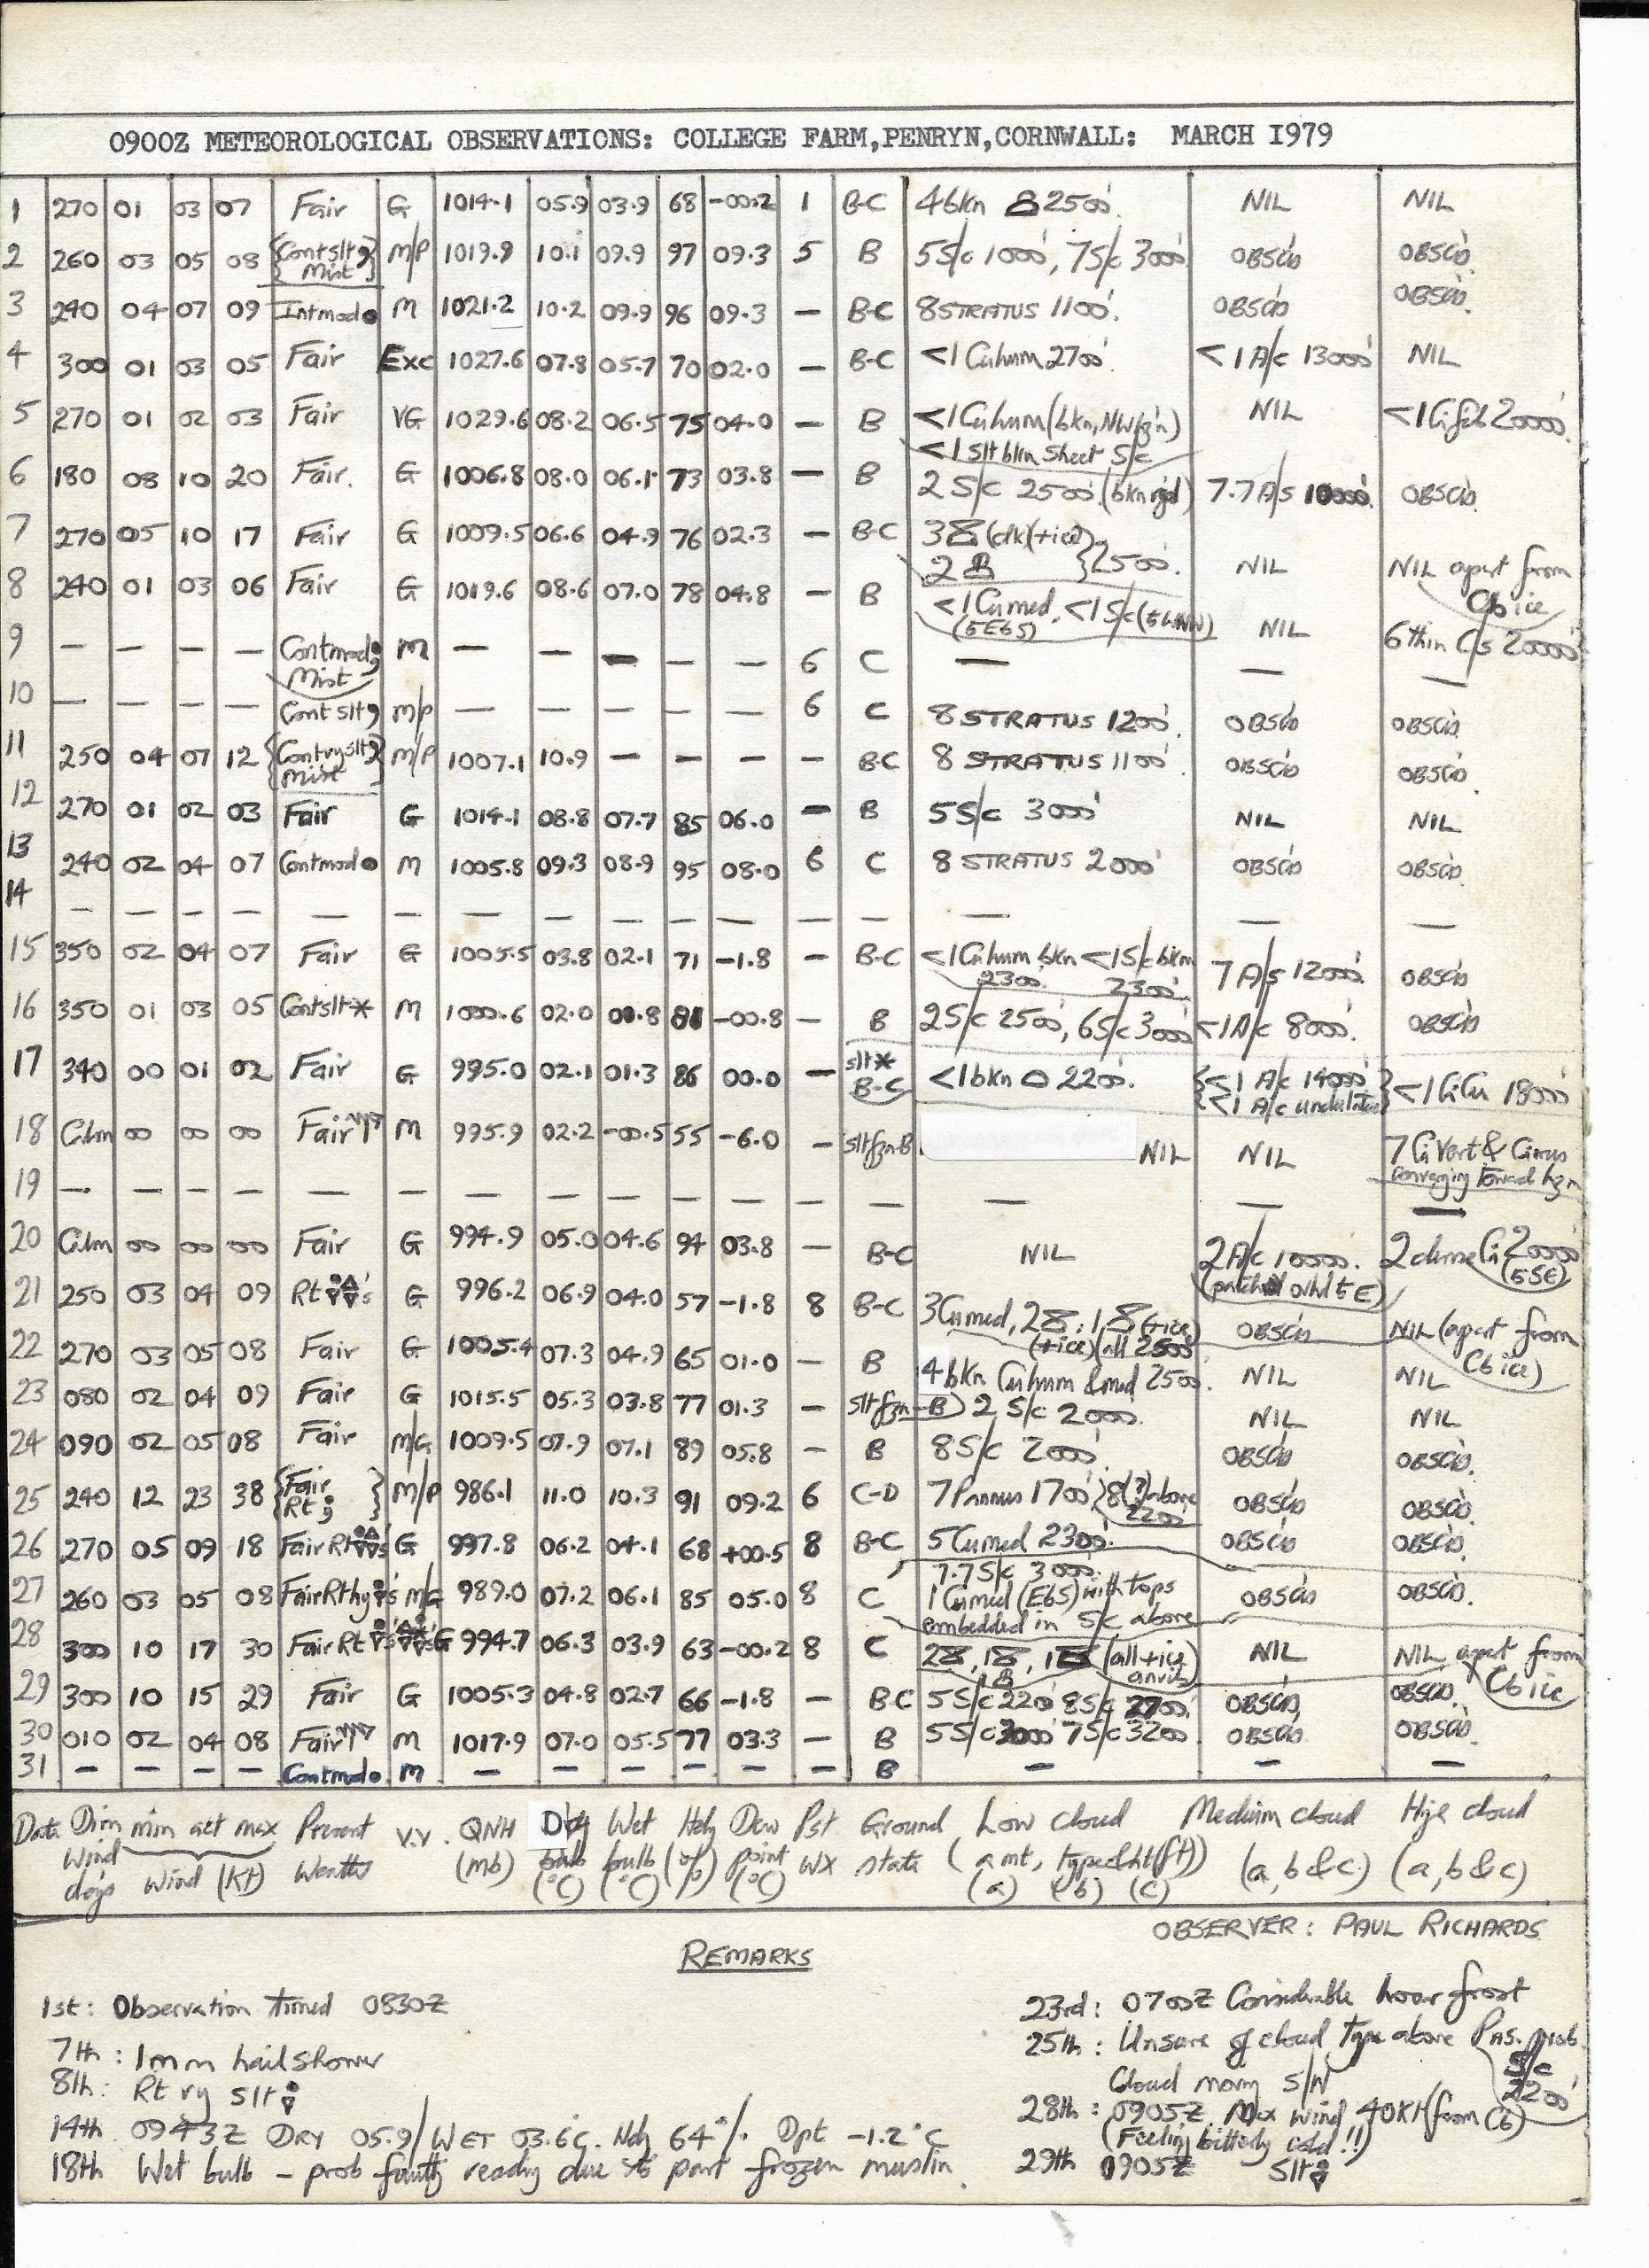 0900Z METEOROLOGICAL OBSERVATIONS: COLLEGE FARM,PENRYN,CORNWALL: MARCH I979
1 270 01 03 07 Fair G 1014.1 05.9 03.9 68 -00.2 1 B-C 4bkn 2500'. NIL NIL
2 260 03 05 08 {Cont slt Mist} M/P 1019.9 10.1 09.9 97 09.3 5 B 5S/c 1000', 7S/c 3000' OBSC'D OBSC'D.
3 240 04 07 09 Int mod ● M 1021.2 10.2 09.9 96 09.3 – B-C 8 STRATUS 1100'. OBSC'D OBSC'D.
4 300 01 03 05 Fair Exc 1027.6 07.8 05.7 70 02.0 – B-C <1 Cu hum 2700'. <1 A/c 13000' NIL
5 270 01 02 03 Fair VG 1029.6 08.2 06.5 75 04.0 – B <1 Cu hum (bkn, NW hz'n) NIL <1 Ci fib 20000'.
<1 slt bkn sheet S/c
6 180 08 10 20 Fair. G 1006.8 08.0 06.1 73 03.8 – B 2 S/c 2500' 7.7 A/s 10000'. OBSC'D.
7 270 05 10 17 Fair G 1009.5 06.6 04.9 76 02.3 – B-C 3 (+ice)
2 } 2500'. NIL NIL apart from Cb ice
8 240 01 03 06 Fair G 1019.6 08.6 07.0 78 04.8 – B <1 Cu med, <1 S/c NIL 6 thin Cs 20000'
9 – – – – Cont mod Mist M – – – – – 6 C – – –
10 – – – – Cont slt M/P – – – – – 6 C 8 STRATUS 1200'. OBSC'D OBSC'D.
11 250 04 07 12 {Cont vy slt Mist} M/P 1007.1 10.9 – – – – B-C 8 STRATUS 1100' OBSC'D OBSC'D.
12 270 01 02 03 Fair G 1014.1 08.8 07.7 85 06.0 – B 5S/c 3000' NIL NIL
13 240 02 04 07 Cont mod ● M 1005.8 09.3 08.9 95 08.0 6 C 8 STRATUS 2000' OBSC'D OBSC'D.
14 – – – – – – – – – – – – – – – –
15 350 02 04 07 Fair G 1005.5 03.8 02.1 71 -1.8 – B-C <1 Cu hum bkn <1 S/c bkn 7 A/s 12000'. OBSC'D
2300'. 2300'.
16 350 01 03 05 Cont slt * M 1000.6 02.0 00.8 81 -00.8 – B 2S/c 2500', 6S/c 3000' <1 A/c 8000'. OBSC'D
17 340 00 01 02 Fair G 995.0 02.1 01.3 86 00.0 – slt * B-C <1 bkn 2200'. {<1 A/c 14000' <1 A/c undulatus} <1 CiCu 18000'
18 Calm 00 00 00 Fair M 995.9 02.2 -00.5 55 -6.0 – slt fzn-B NIL NIL 7 Ci Vert & Cirrus
converging toward hzn
19 – – – – – – – – – – – – – – – –
20 Calm 00 00 00 Fair G 994.9 05.0 04.6 94 03.8 – B-C NIL 2 A/c 10000'. 2 dense Ci 20000'
(SSE)
21 250 03 04 09 Rt G 996.2 06.9 04.0 57 -1.8 8 B-C 3 Cu med, 2 , 1 (+ice) OBSC'D NIL (apart from Cb ice)
(+ice) (all 2500')
22 270 03 05 08 Fair G 1005.4 07.3 04.9 65 01.0 – B 4 bkn Cu hum & med 2500'. NIL NIL
23 080 02 04 09 Fair G 1015.5 05.3 03.8 77 01.3 – slt fzn-B 2 S/c 2000'. NIL NIL
24 090 02 05 08 Fair M/G 1009.5 07.9 07.1 89 05.8 – B 8S/c 2000' OBSC'D OBSC'D.
25 240 12 23 38 {Fair Rt } M/P 986.1 11.0 10.3 91 09.2 6 C-D 7 Pannus 1700' 8(?) above 2200' OBSC'D OBSC'D.
26 270 05 09 18 Fair Rt G 997.8 06.2 04.1 68 +00.5 8 B-C 5 Cu med 2300'. OBSC'D OBSC'D.
7.7 S/c 3000'.
27 260 03 05 08 Fair Rt hvy M/G 989.0 07.2 06.1 85 05.0 8 C 1 Cu med (E6S) with tops OBSC'D OBSC'D.
embedded in S/c above
28 300 10 17 30 Fair Rt G 994.7 06.3 03.9 63 -00.2 8 C 2 , 1 , 1 (all +ice anvils) NIL NIL apart from Cb ice
29 300 10 15 29 Fair G 1005.3 04.8 02.7 66 -1.8 – B-C 5S/c 2200' 8S/c 2700'. OBSC'D, OBSC'D.
30 010 02 04 08 Fair M 1017.9 07.0 05.5 77 03.3 – B 5S/c 3000' 7S/c 3200' OBSC'D OBSC'D.
31 – – – – Cont mod ● M – – – – – – B – – –
Date Dirn min act max Present V.V. QNH Dry Wet Hdy Dew Pst Ground Low cloud Medium cloud High cloud
Wind deg's Wind (Kt) Weather (mb) bulb (°C) bulb (°C) (%) point (°C) WX state (amt, type & ht (ft)) (a, b & c) (a, b & c)
(a) (b) (c)
OBSERVER: PAUL RICHARDS
REMARKS
1st: Observation timed 0830Z
7th: 1mm hail shower
8th: Rt vy slt
14th 0943Z DRY 05.9/WET 03.6°C. Hdy 64% Dpt -1.2°C
18th Wet bulb - prob faulty reading due to part frozen muslin.
23rd: 0700Z Considerable hoar frost
25th: Unsure of cloud type above Pns. prob. S/c 2200'
Cloud moving S/W
28th: 0905Z Max wind 40Kt (from Cb)
(Feeling bitterly cold!!)
29th 0905Z Slt